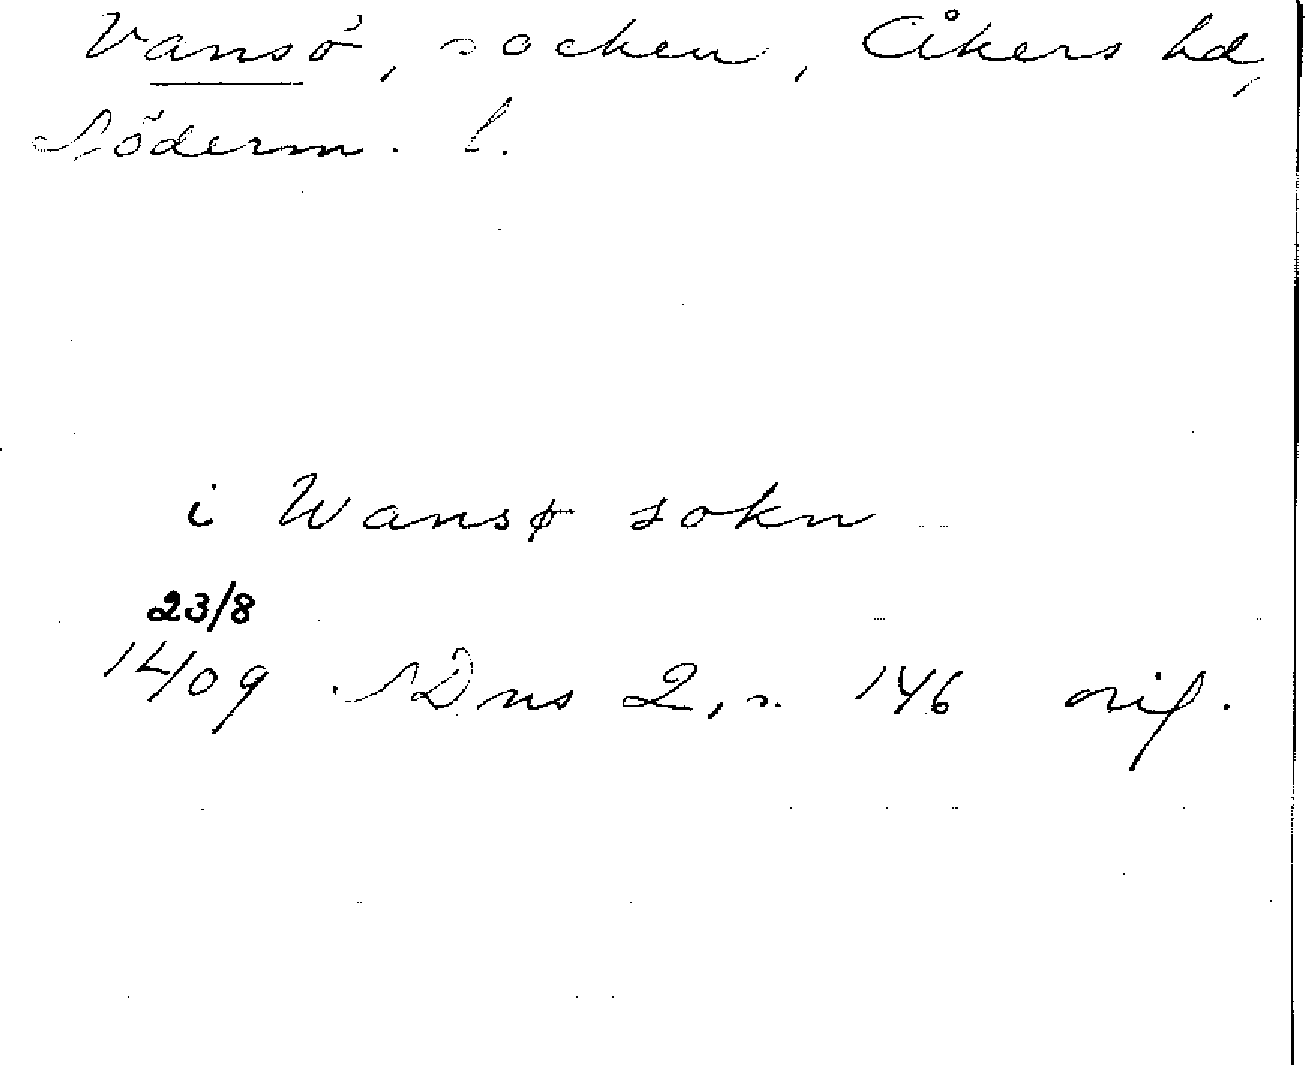 Vansö, socken, Åkers hd,
Söderm. l.
i Wansø sokn
23/8
1409 SDns 2, s. 146 orig.